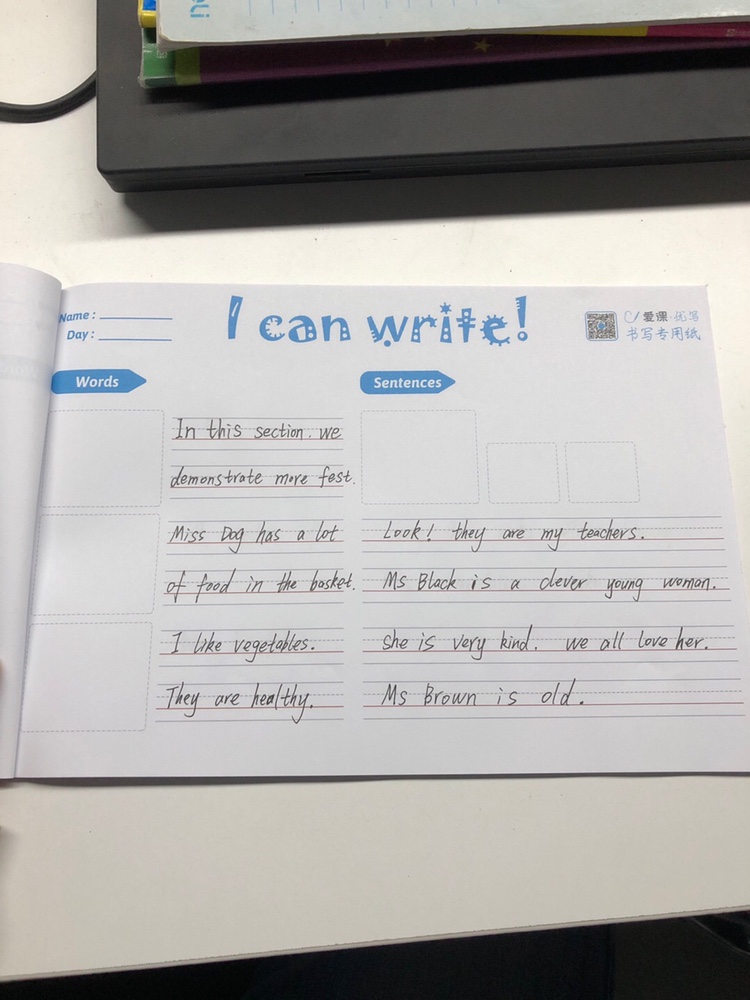 oli
Name :
Day :
I can write!
爱课
书写专用纸
Words
In this section. we
demonstrate more fest.
Miss Dog has a lot
of food in the basket.
I like vegetables.
They are healthy.
Sentences
Look! they are my teachers.
Ms Black is a clever young woman.
she is very kind. we all love her.
Ms Brown is old.